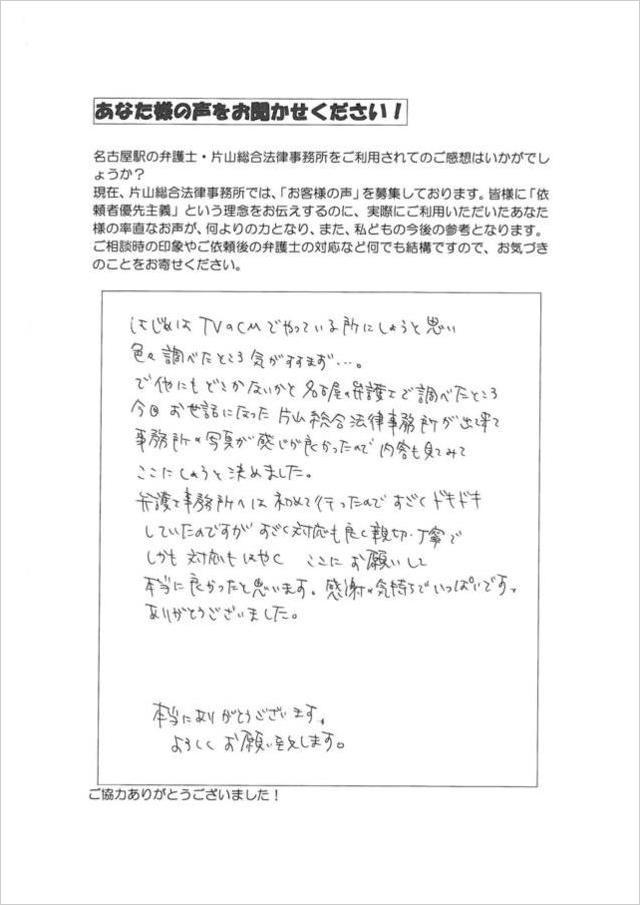 あなた様の声をお聞かせください!
名古屋駅の弁護士・片山総合法律事務所をご利用されてのご感想はいかがでしょ
ょうか?
現在、片山総合法律事務所では、「お客様の声」を募集しております。皆様に「依
頼者優先主義」という理念をお伝えするのに、実際にご利用いただいたあなた
様の率直なお声が、何よりの力となり、また、私どもの今後の参考となります。
ご相談時の印象やご依頼後の弁護士の対応など何でも結構ですので、お気づき
のことをお寄せください。
はじめは TVのCMでやっている所にしようと思い
色々調べたところ気がすすまず…。
で他にもどこかないかと名古屋の弁護士で調べたところ
今回お世話になった片山総合法律事務所が出て来て
事務所の写真が感じが良かったので内容も見てみて
ここにしようと決めました。
弁護士事務所へは初めて行ったのですごくドキドキ
していたのですがすごく対応も良く親切・丁寧で
しかも対応もはやく ここにお願いして
本当に良かったと思います。感謝の気持ちでいっぱいです。
ありがとうございました。
本当にありがとうございます。
よろしくお願い致します。
ご協力ありがとうございました!